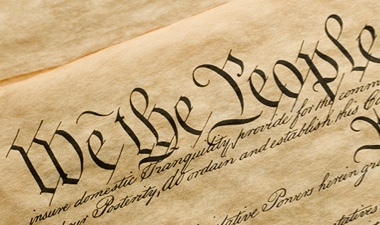 We the People
insure domestic Tranquility, provide for the comm
our Posterity, do ordain and establish this C
lative Powers herein gr